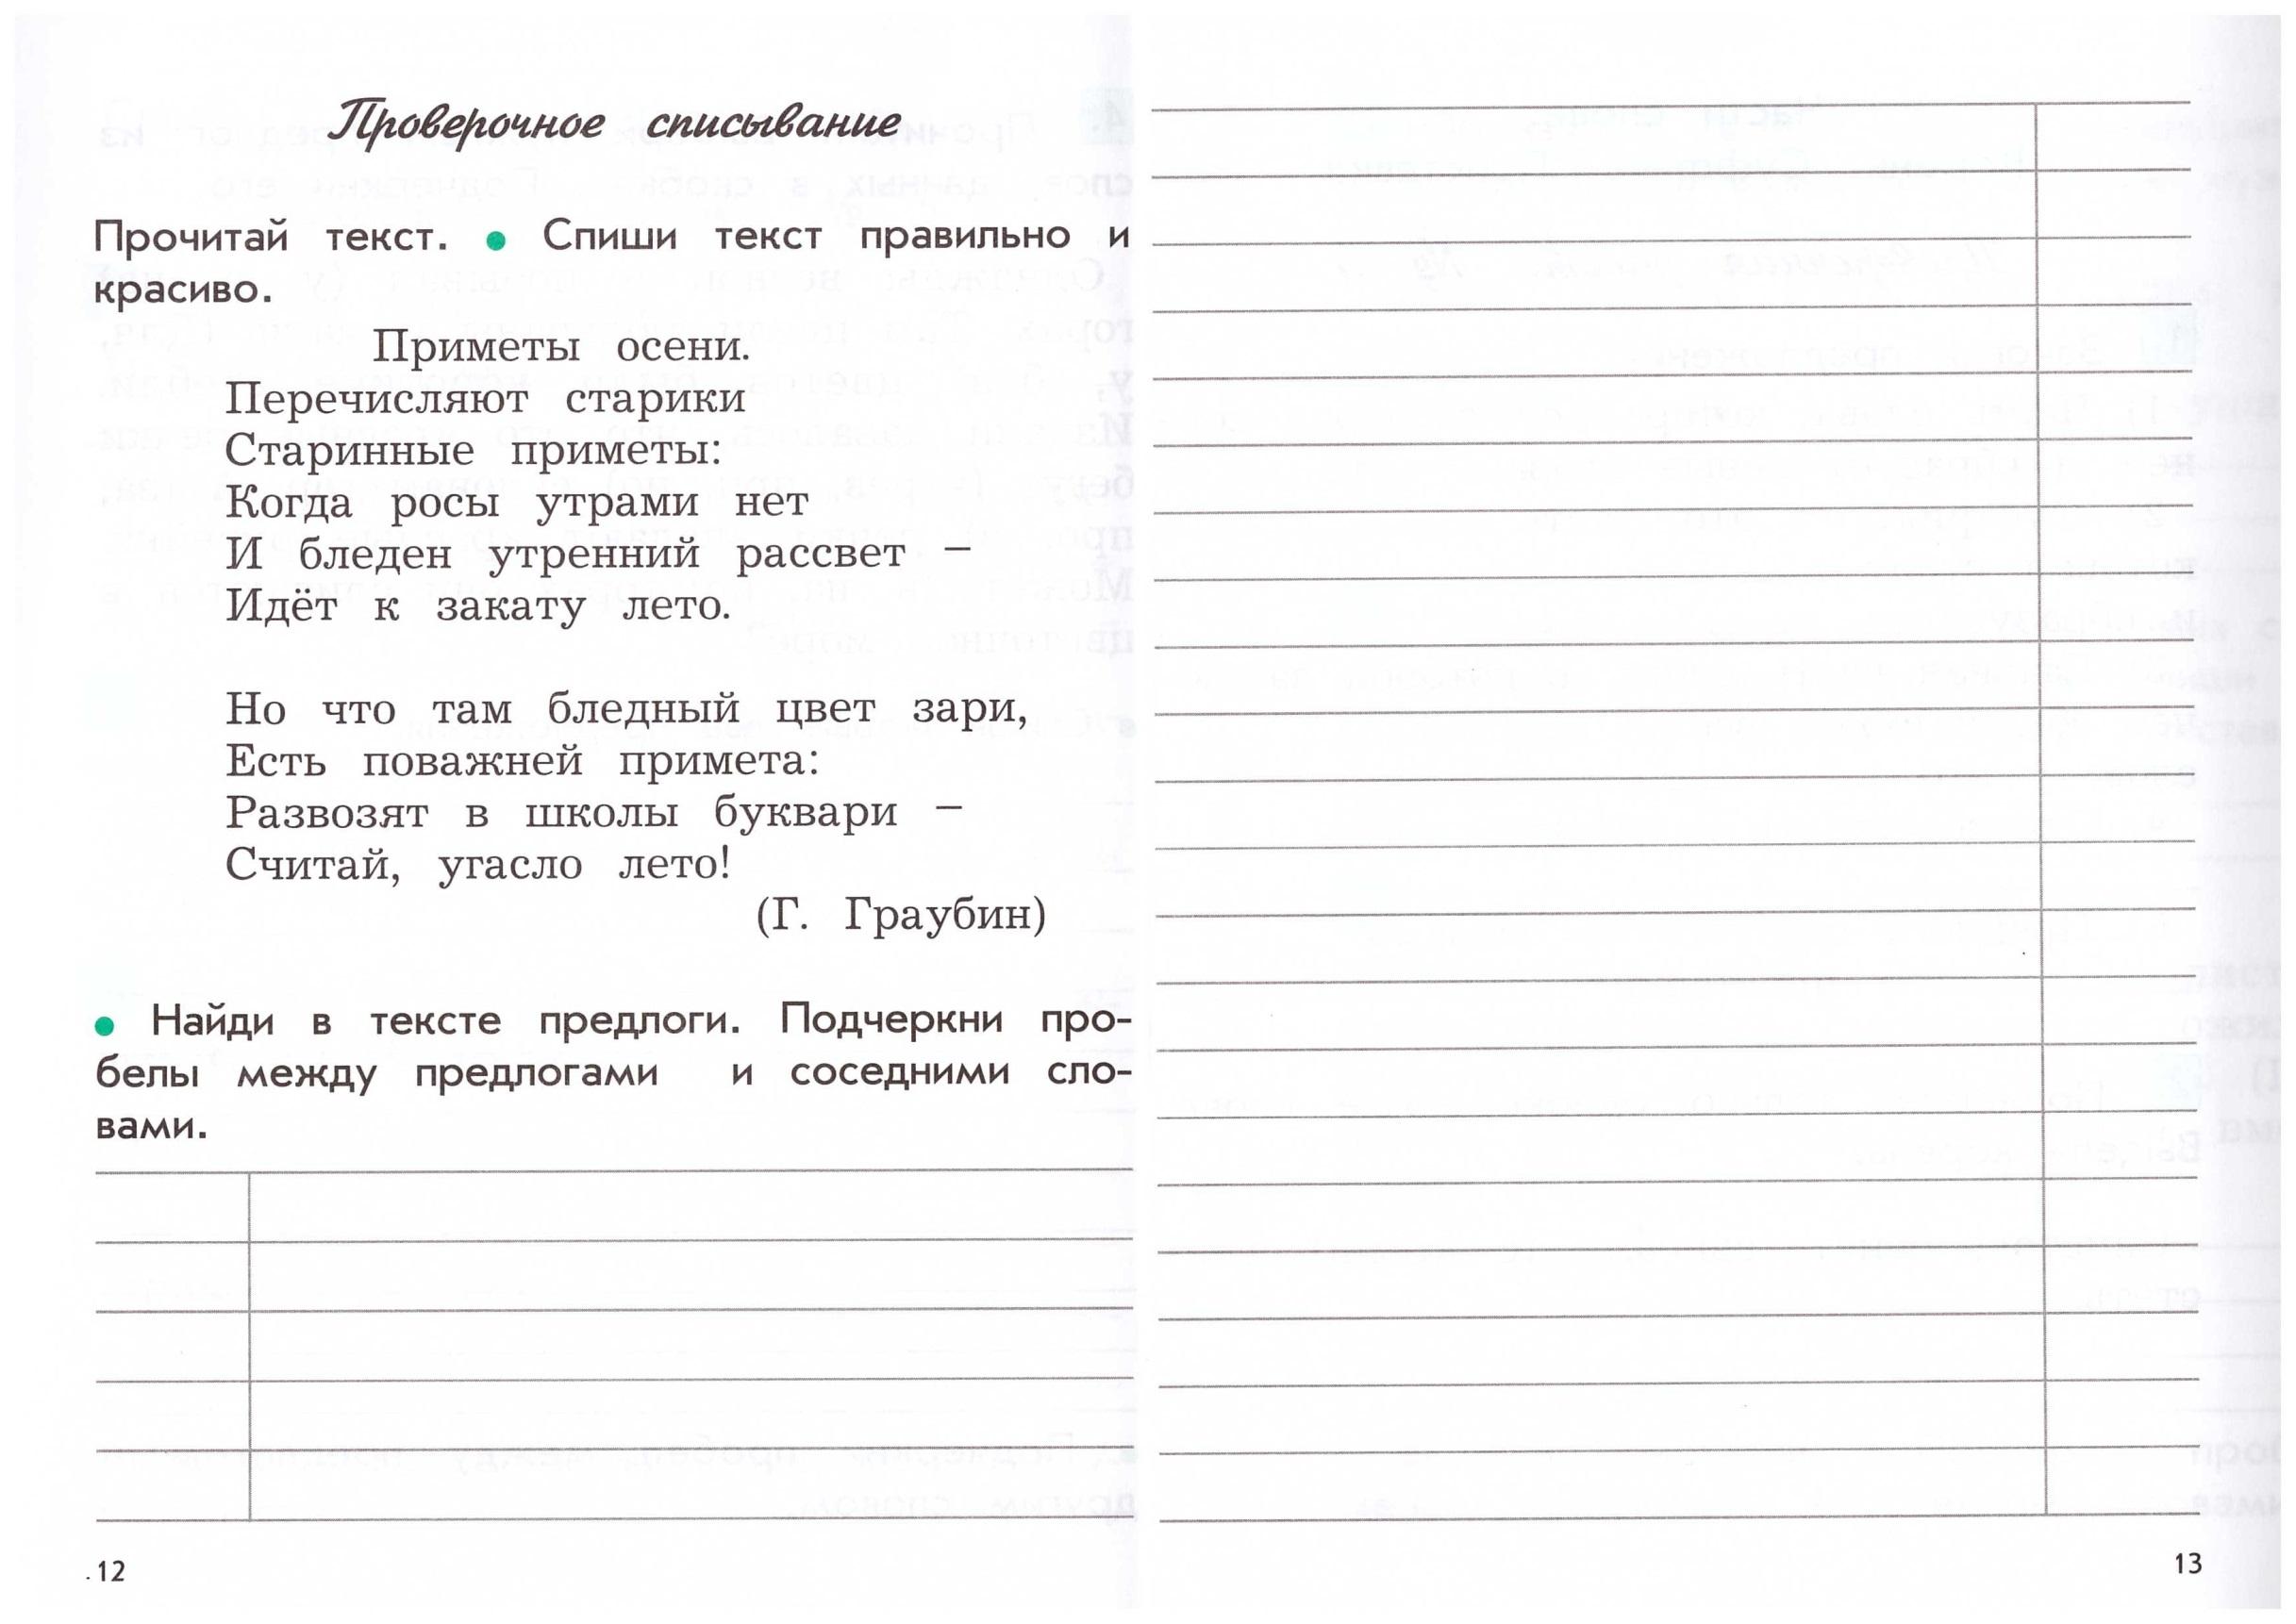 Проверочное списывание
Прочитай текст. ● Спиши текст правильно и
красиво.
Приметы осени.
Перечисляют старики
Старинные приметы:
Когда росы утрами нет
И бледен утренний рассвет –
Идёт к закату лето.
Но что там бледный цвет зари,
Есть поважней примета:
Развозят в школы буквари –
Считай, угасло лето!
(Г. Граубин)
● Найди в тексте предлоги. Подчеркни про-
белы между предлогами и соседними сло-
вами.
12
13